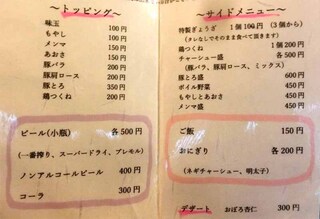 ～トッピング～
味玉 100円
もやし 100円
メンマ 150円
あおさ 150円
豚バラ 200円
豚肩ロース 200円
豚とろ 350円
鶏つくね 200円
ビール(小瓶) 各500円
(一番搾り、スーパードライ、プレモル)
ノンアルコールビール 400円
コーラ 300円
～サイドメニュー～
特製ぎょうざ 1個100円 (3個から)
(タレなしでそのまま食べて頂きます)
鶏つくね 1個200円
チャーシュー盛 各500円
(豚バラ、豚肩ロース、ミックス)
豚とろ盛 600円
ボイル野菜 450円
もやしとあおさ 450円
メンマ盛 450円
ご飯 150円
おにぎり 各200円
(ネギチャーシュー、明太子)
デザート おぼろ杏仁 300円